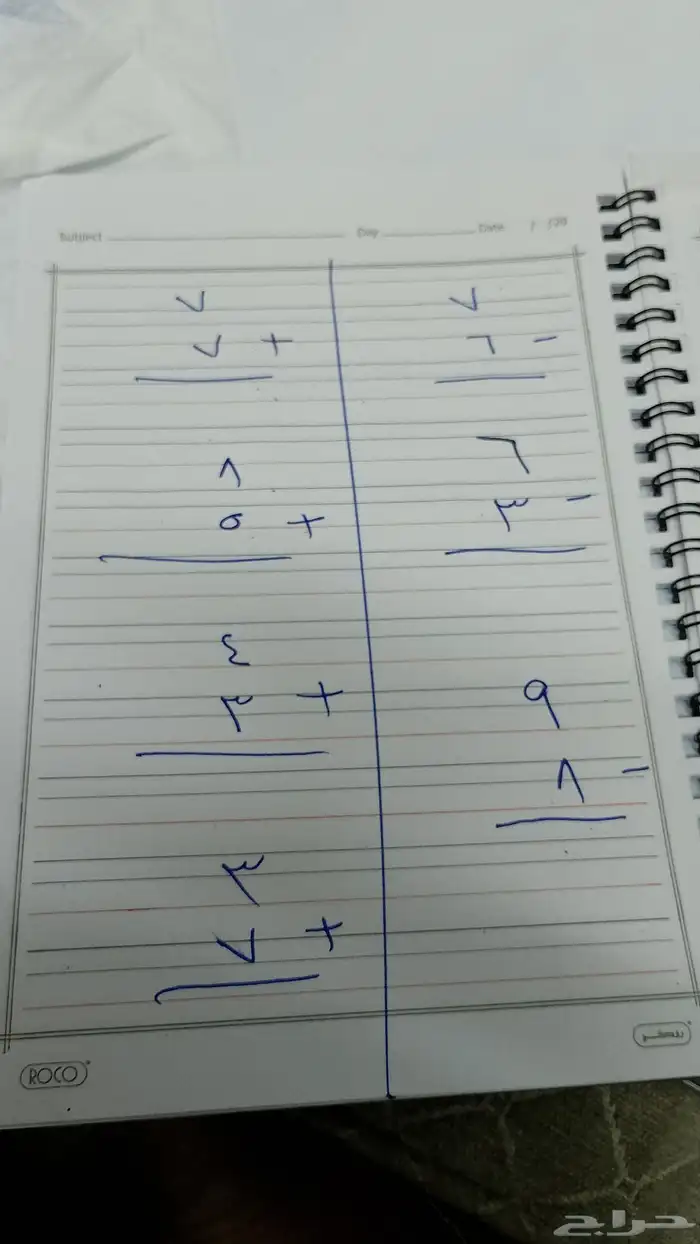 Subject Day Date / /20
٧
٦ -
٦
٣ -
٩
٨ -
٧
٧ +
٨
٥ +
٤
٣ +
٣
٧ +
ROCO
حراج